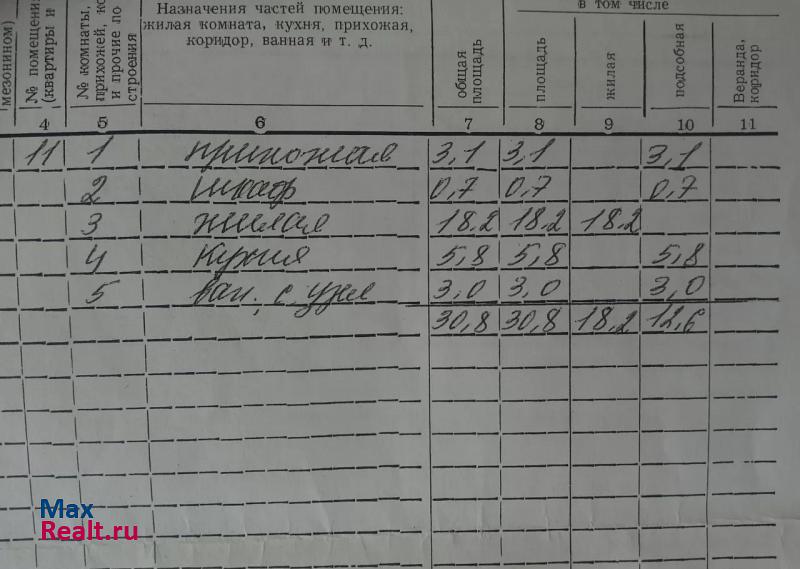 мезонином)
№ помещения
(квартиры и
№ комнаты,
прихожей, ко
и прочие по
строения
Назначения частей помещения:
жилая комната, кухня, прихожая,
коридор, ванная и т. д.
общая
площадь
в том числе
площадь
жилая
подсобная
Веранда,
коридор
4 5 6 7 8 9 10 11
11 1 прихожая 3,1 3,1 3,1
2 шкаф 0,7 0,7 0,7
3 жилая 18.2 18.2 18.2
4 кухня 5,8 5,8 5,8
5 ван. с. узел 3,0 3,0 3,0
30,8 30,8 18,2 12,6
Max
Realt.ru